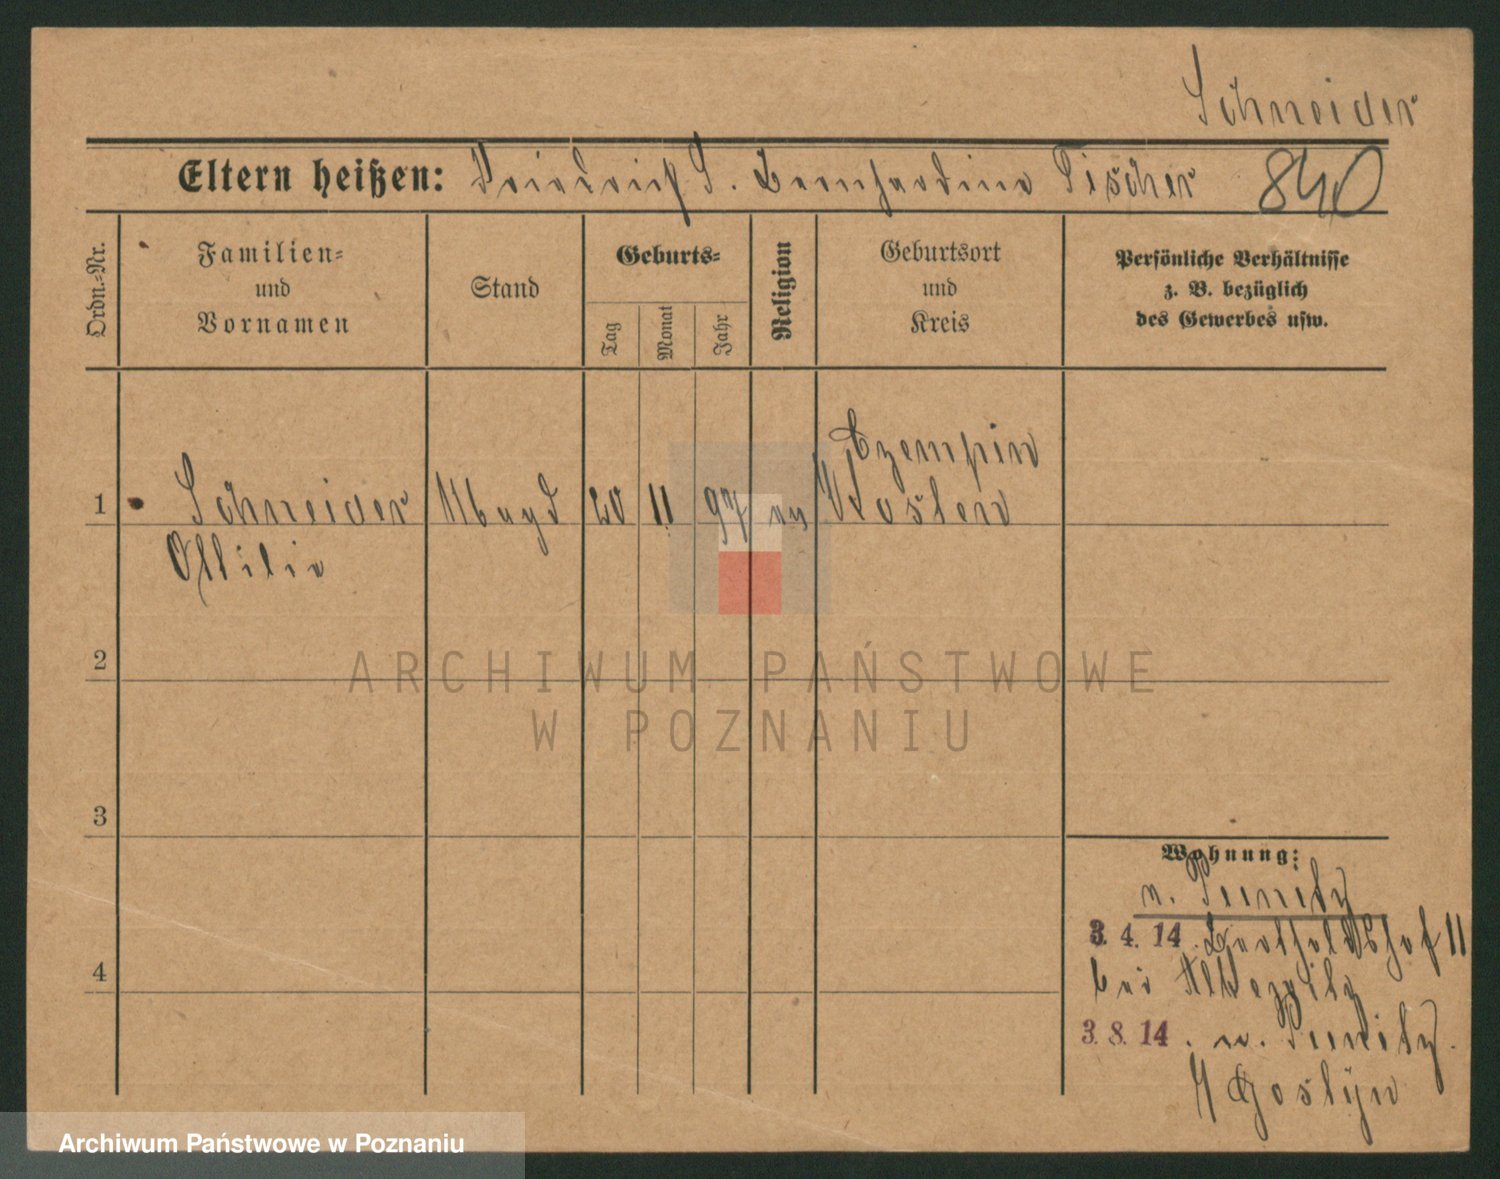 Schneider
Eltern heißen: Friedrich S. Bernhardine Fischer 840
Ordn.-Nr.
Familien-
und
Vornamen
Stand
Geburts-
Tag
Monat
Jahr
Religion
Geburtsort
und
Kreis
Persönliche Verhältnisse
z. B. bezüglich
des Gewerbes usw.
1 Schneider Magd 20 11 97 ev Czempin
Kosten
Ottilie
2
3
4
Wohnung:
n. Punitz
3.4.14. Bertholdshof 11
bei
3.8.14. n. Punitz.
Gostyn
ARCHIWUM PAŃSTWOWE
W POZNANIU
Archiwum Państwowe w Poznaniu